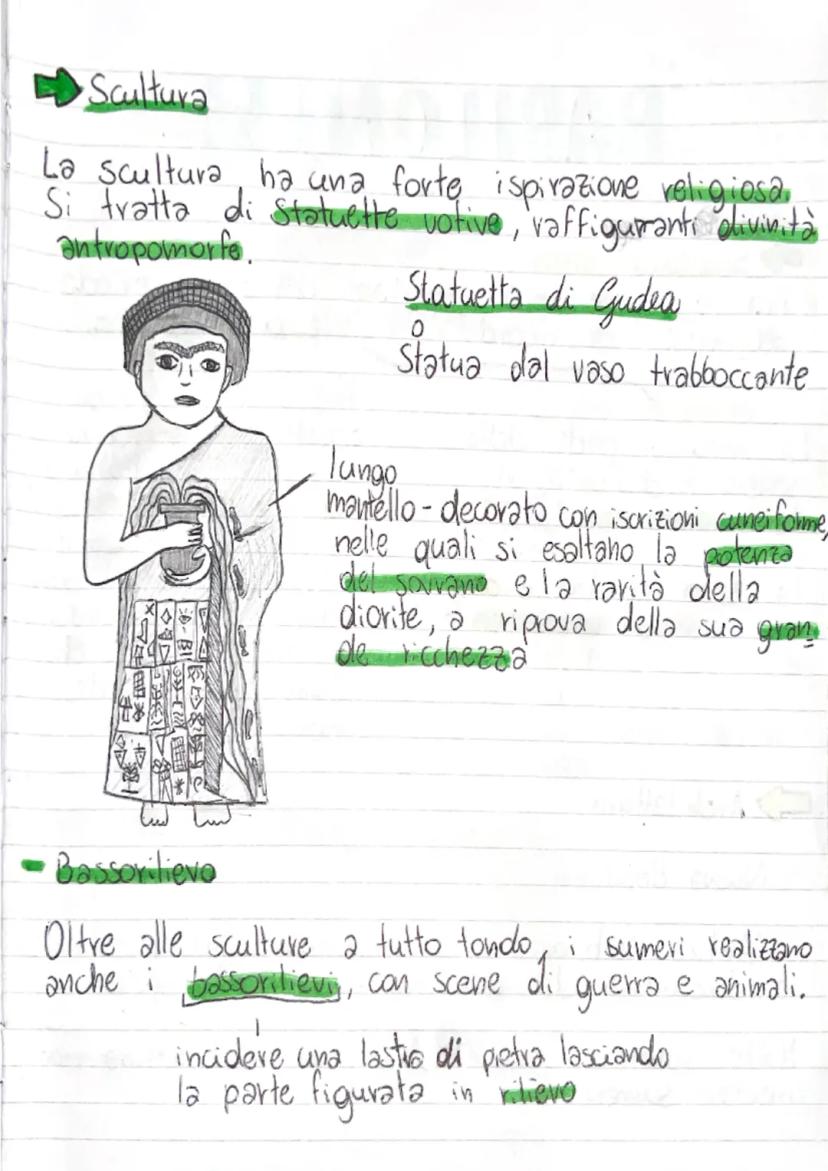 Scultura
La scultura ha una forte ispirazione religiosa.
Si tratta di statuette votive, raffiguranti divinità
antropomorfe.
Statuetta di Gudea
o
Statua dal vaso trabboccante
lungo
mantello - decorato con iscrizioni cuneiforme,
nelle quali si esaltano la potenza
del sovrano e la rarità della
diorite, a riprova della sua gran
de ricchezza
- Bassorilievo
Oltre alle sculture a tutto tondo, i sumeri realizzano
anche i bassorilievi, con scene di guerra e animali.
incidere una lastra di pietra lasciando
la parte figurata in rilievo